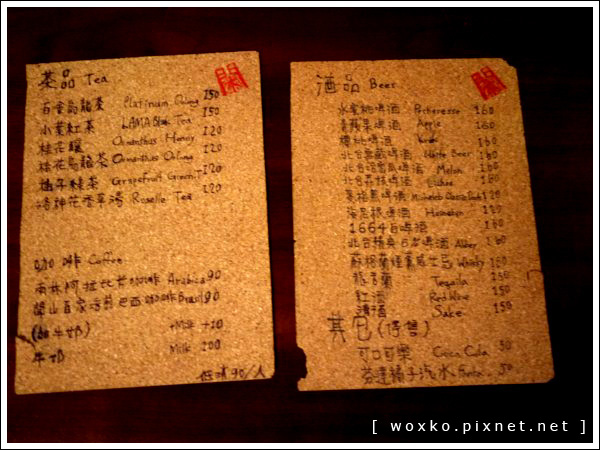 茶品 Tea
白金烏龍茶 Platinum Oolong 150
小葉紅茶 LAMA Tea 150
桂花釀 Osmanthus Honey 120
桂花烏龍茶 Osmanthus Oolong 120
橘子綠茶 Grapefruit Green T 120
洛神花香草湯 Roselle Tea 120
咖啡 Coffee
雨林阿拉比卡咖啡 Arabica 90
關山百家活莊巴西咖啡 Brasil 90
(加牛奶) +Milk +10
牛奶 Milk 200
低消90/人
酒品 Beer
水蜜桃啤酒 Pecheresse 160
青蘋果啤酒 Apple 160
櫻桃啤酒 160
北台 啤酒 White Beer 160
北台哈密瓜啤酒 Melon 160
北台荔枝啤酒 160
麥格黑啤酒 160
海尼根啤酒 Heineken 160
1664白啤酒
北台精英 啤酒 Abbey 160
蘇格蘭 威士忌 Whisky 160
龍舌蘭 Tequila 150
紅酒 Red Wine 150
清酒 Sake 150
其它(停售)
可口可樂 Coca Cola 50
芬達橘子汽水 Fanta 50
[ woxko.pixnet.net ]